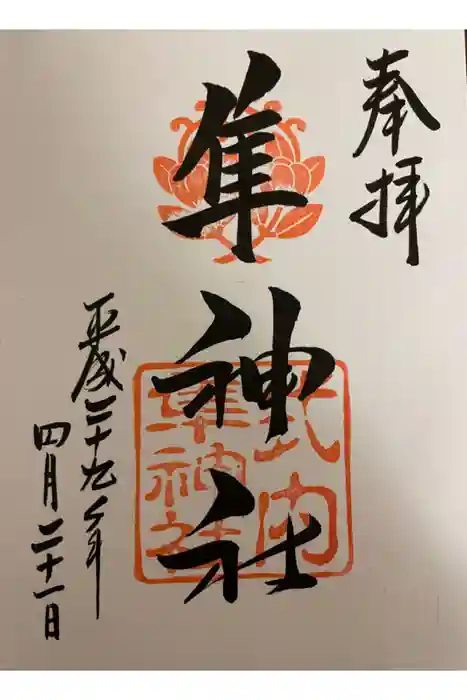 奉拝
隼神社
式内
隼神社
平成二十九年
四月二十一日